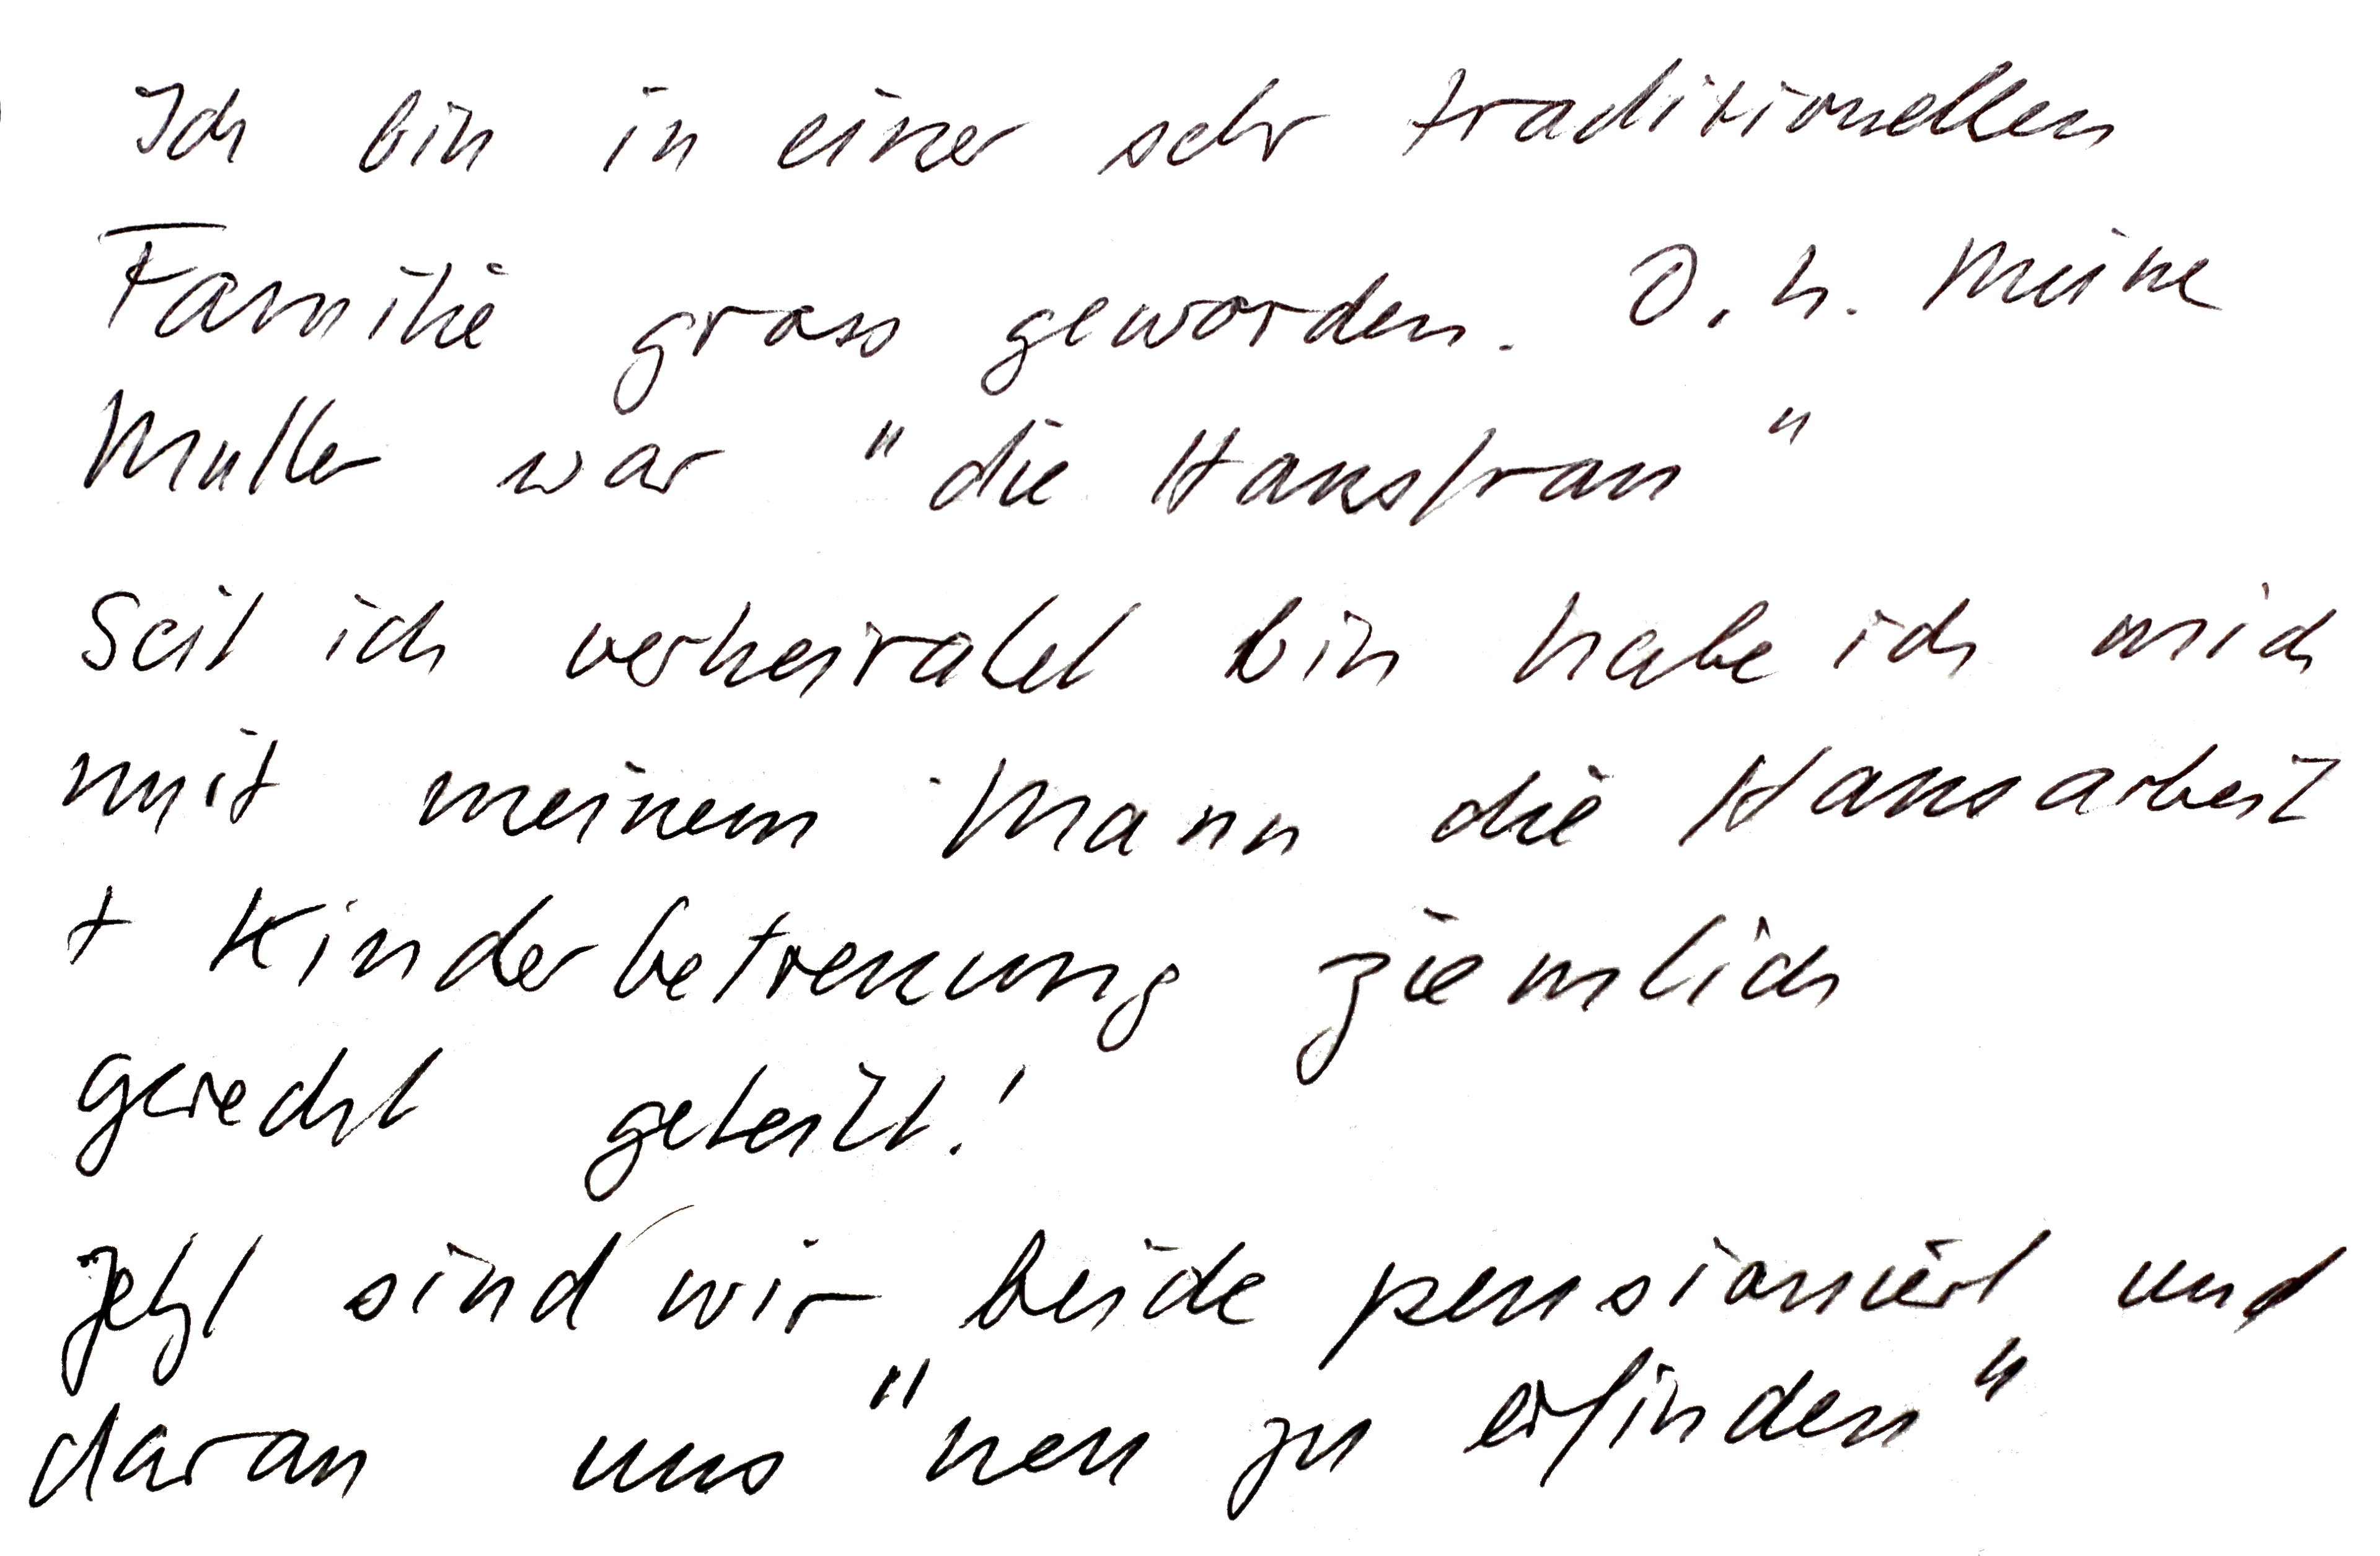 Ich bin in einer sehr traditionellen
Familie gross geworden. D. h. meine
Mutter war "die Hausfrau"
Seit ich verheiratet bin habe ich mich
mit meinem Mann die Hausarbeit
+ Kinderbetreuung ziemlich
gerecht geteilt!
Jetzt sind wir beide pensioniert und
daran uns "neu zu erfinden"